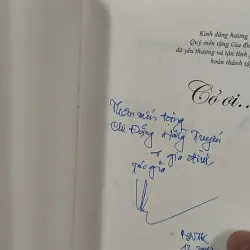 Kính dâng hương
Quý mến tặng Gia đì
đã yêu thương và tận tình
hoàn thành tậ
Cỏ ơi...
Thân mến tặng
Chị Đặng Hồng Truyền
& gia đình
tác giả